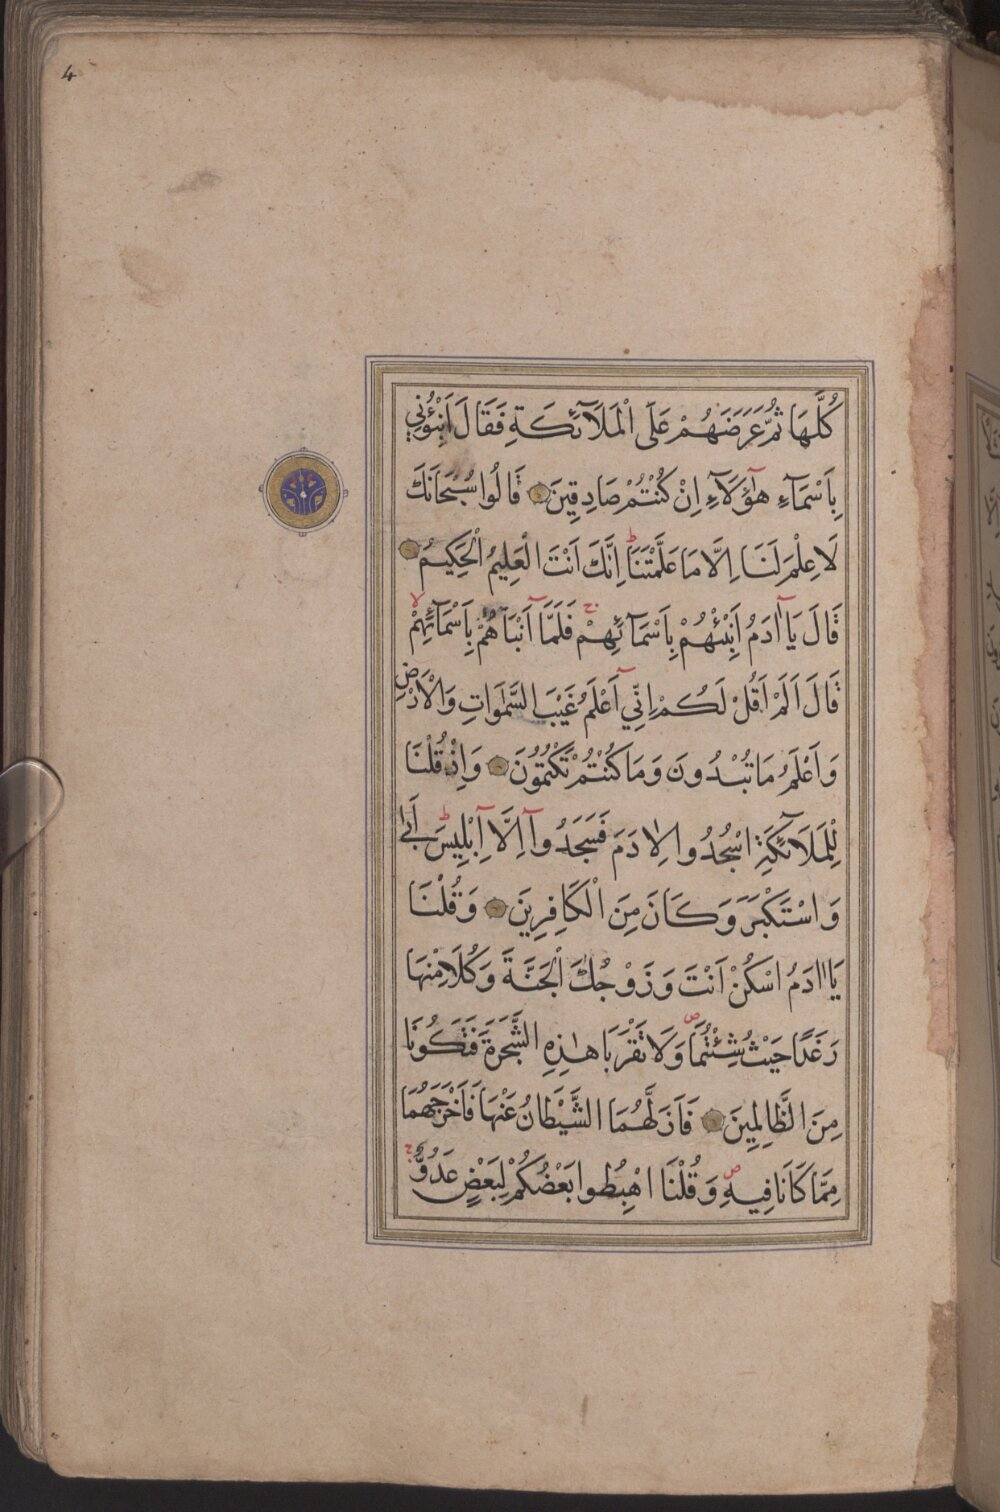 4
كُلَّهَا ثُمَّ عَرَضَهُمْ عَلَى الْمَلَآئِكَةِ فَقَالَ اَنْبِؤُنِي
بِاَسْمَآءِ هٰٓؤُلَآءِ اِنْ كُنْتُمْ صَادِقِينَ قَالُوا سُبْحَانَكَ
لَا عِلْمَ لَنَا اِلَّا مَا عَلَّمْتَنَا ط اِنَّكَ اَنْتَ الْعَلِيمُ الْحَكِيمُ
قَالَ يَٓا اٰدَمُ اَنْبِئْهُمْ بِاَسْمَآئِهِمْ ج فَلَمَّٓا اَنْبَاَهُمْ بِاَسْمَآئِهِمْ لا
قَالَ اَلَمْ اَقُلْ لَكُمْ اِنِّيٓ اَعْلَمُ غَيْبَ السَّمٰوَاتِ وَالْاَرْضِ
وَاَعْلَمُ مَا تُبْدُونَ وَمَا كُنْتُمْ تَكْتُمُونَ وَاِذْ قُلْنَا
لِلْمَلَآئِكَةِ اسْجُدُوا لِاٰدَمَ فَسَجَدُوٓا اِلَّٓا اِبْلِيسَ ط اَبٰى
وَاسْتَكْبَرَ وَكَانَ مِنَ الْكَافِرِينَ وَقُلْنَا
يَٓا اٰدَمُ اسْكُنْ اَنْتَ وَزَوْجُكَ الْجَنَّةَ وَكُلَا مِنْهَا
رَغَدًا حَيْثُ شِئْتُمَا ص وَلَا تَقْرَبَا هٰذِهِ الشَّجَرَةَ فَتَكُونَا
مِنَ الظَّالِمِينَ فَاَزَلَّهُمَا الشَّيْطَانُ عَنْهَا فَاَخْرَجَهُمَا
مِمَّا كَانَا فِيهِ ص وَقُلْنَا اهْبِطُوا بَعْضُكُمْ لِبَعْضٍ عَدُوٌّ ج